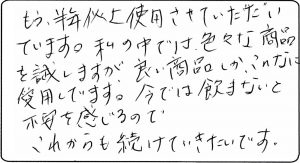 もう、半年以上使用させていただい
ています。私の中では、色々な商品
を試しますが、良い商品しか、こんなに
使用してます。今では飲まないと
不安を感じるので
これからも続けていきたいです。